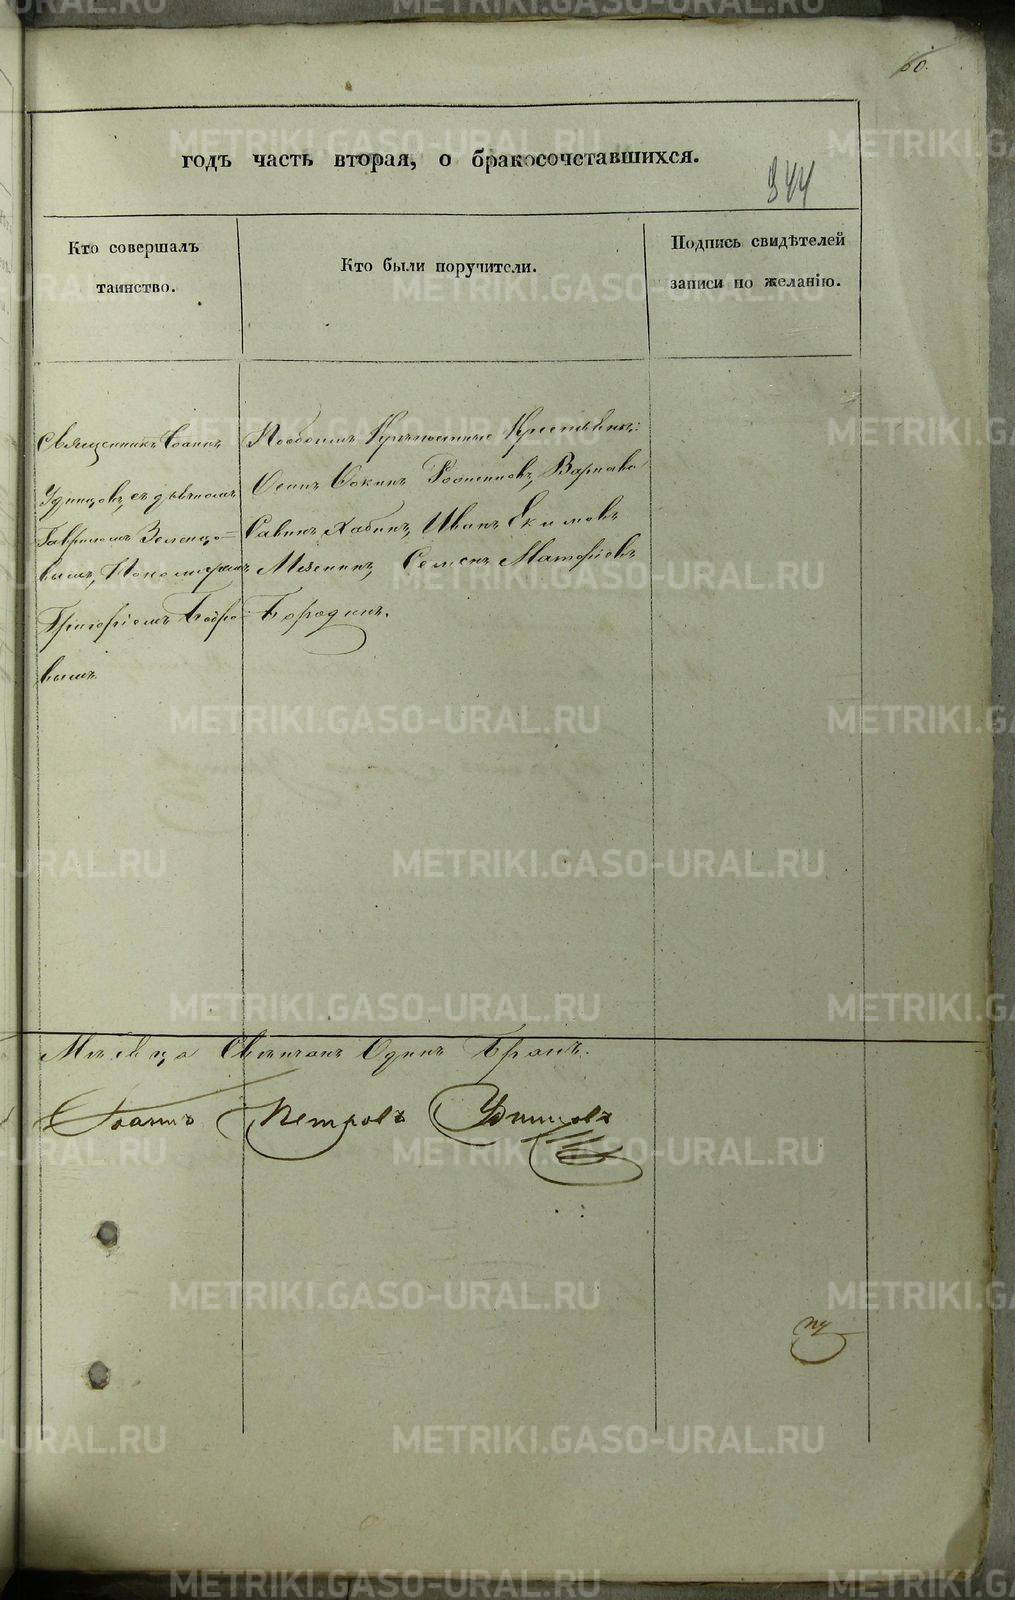 60.
годъ часть вторая, о бракосочетавшихся.
344
Кто совершалъ
таинство.
Кто были поручители.
Подпись свидѣтелей
записи по желанію.
Священникъ Іоаннъ
Удинцовъ, съ дьякономъ
Гавриломъ Зеленцо-
вымъ, Пономаремъ
Григоріемъ Бобро-
вымъ.
Пообоимъ Крестьяне:
Осипъ Варнава
Савинъ Хабинъ, Иванъ Екимовъ
Мезенинъ, Семенъ
Бородинъ.
Мѣсяца Свѣнчанъ Одинъ Бракъ.
Іоаннъ Петровъ Удинцовъ
METRIKI.GASO-URAL.RU